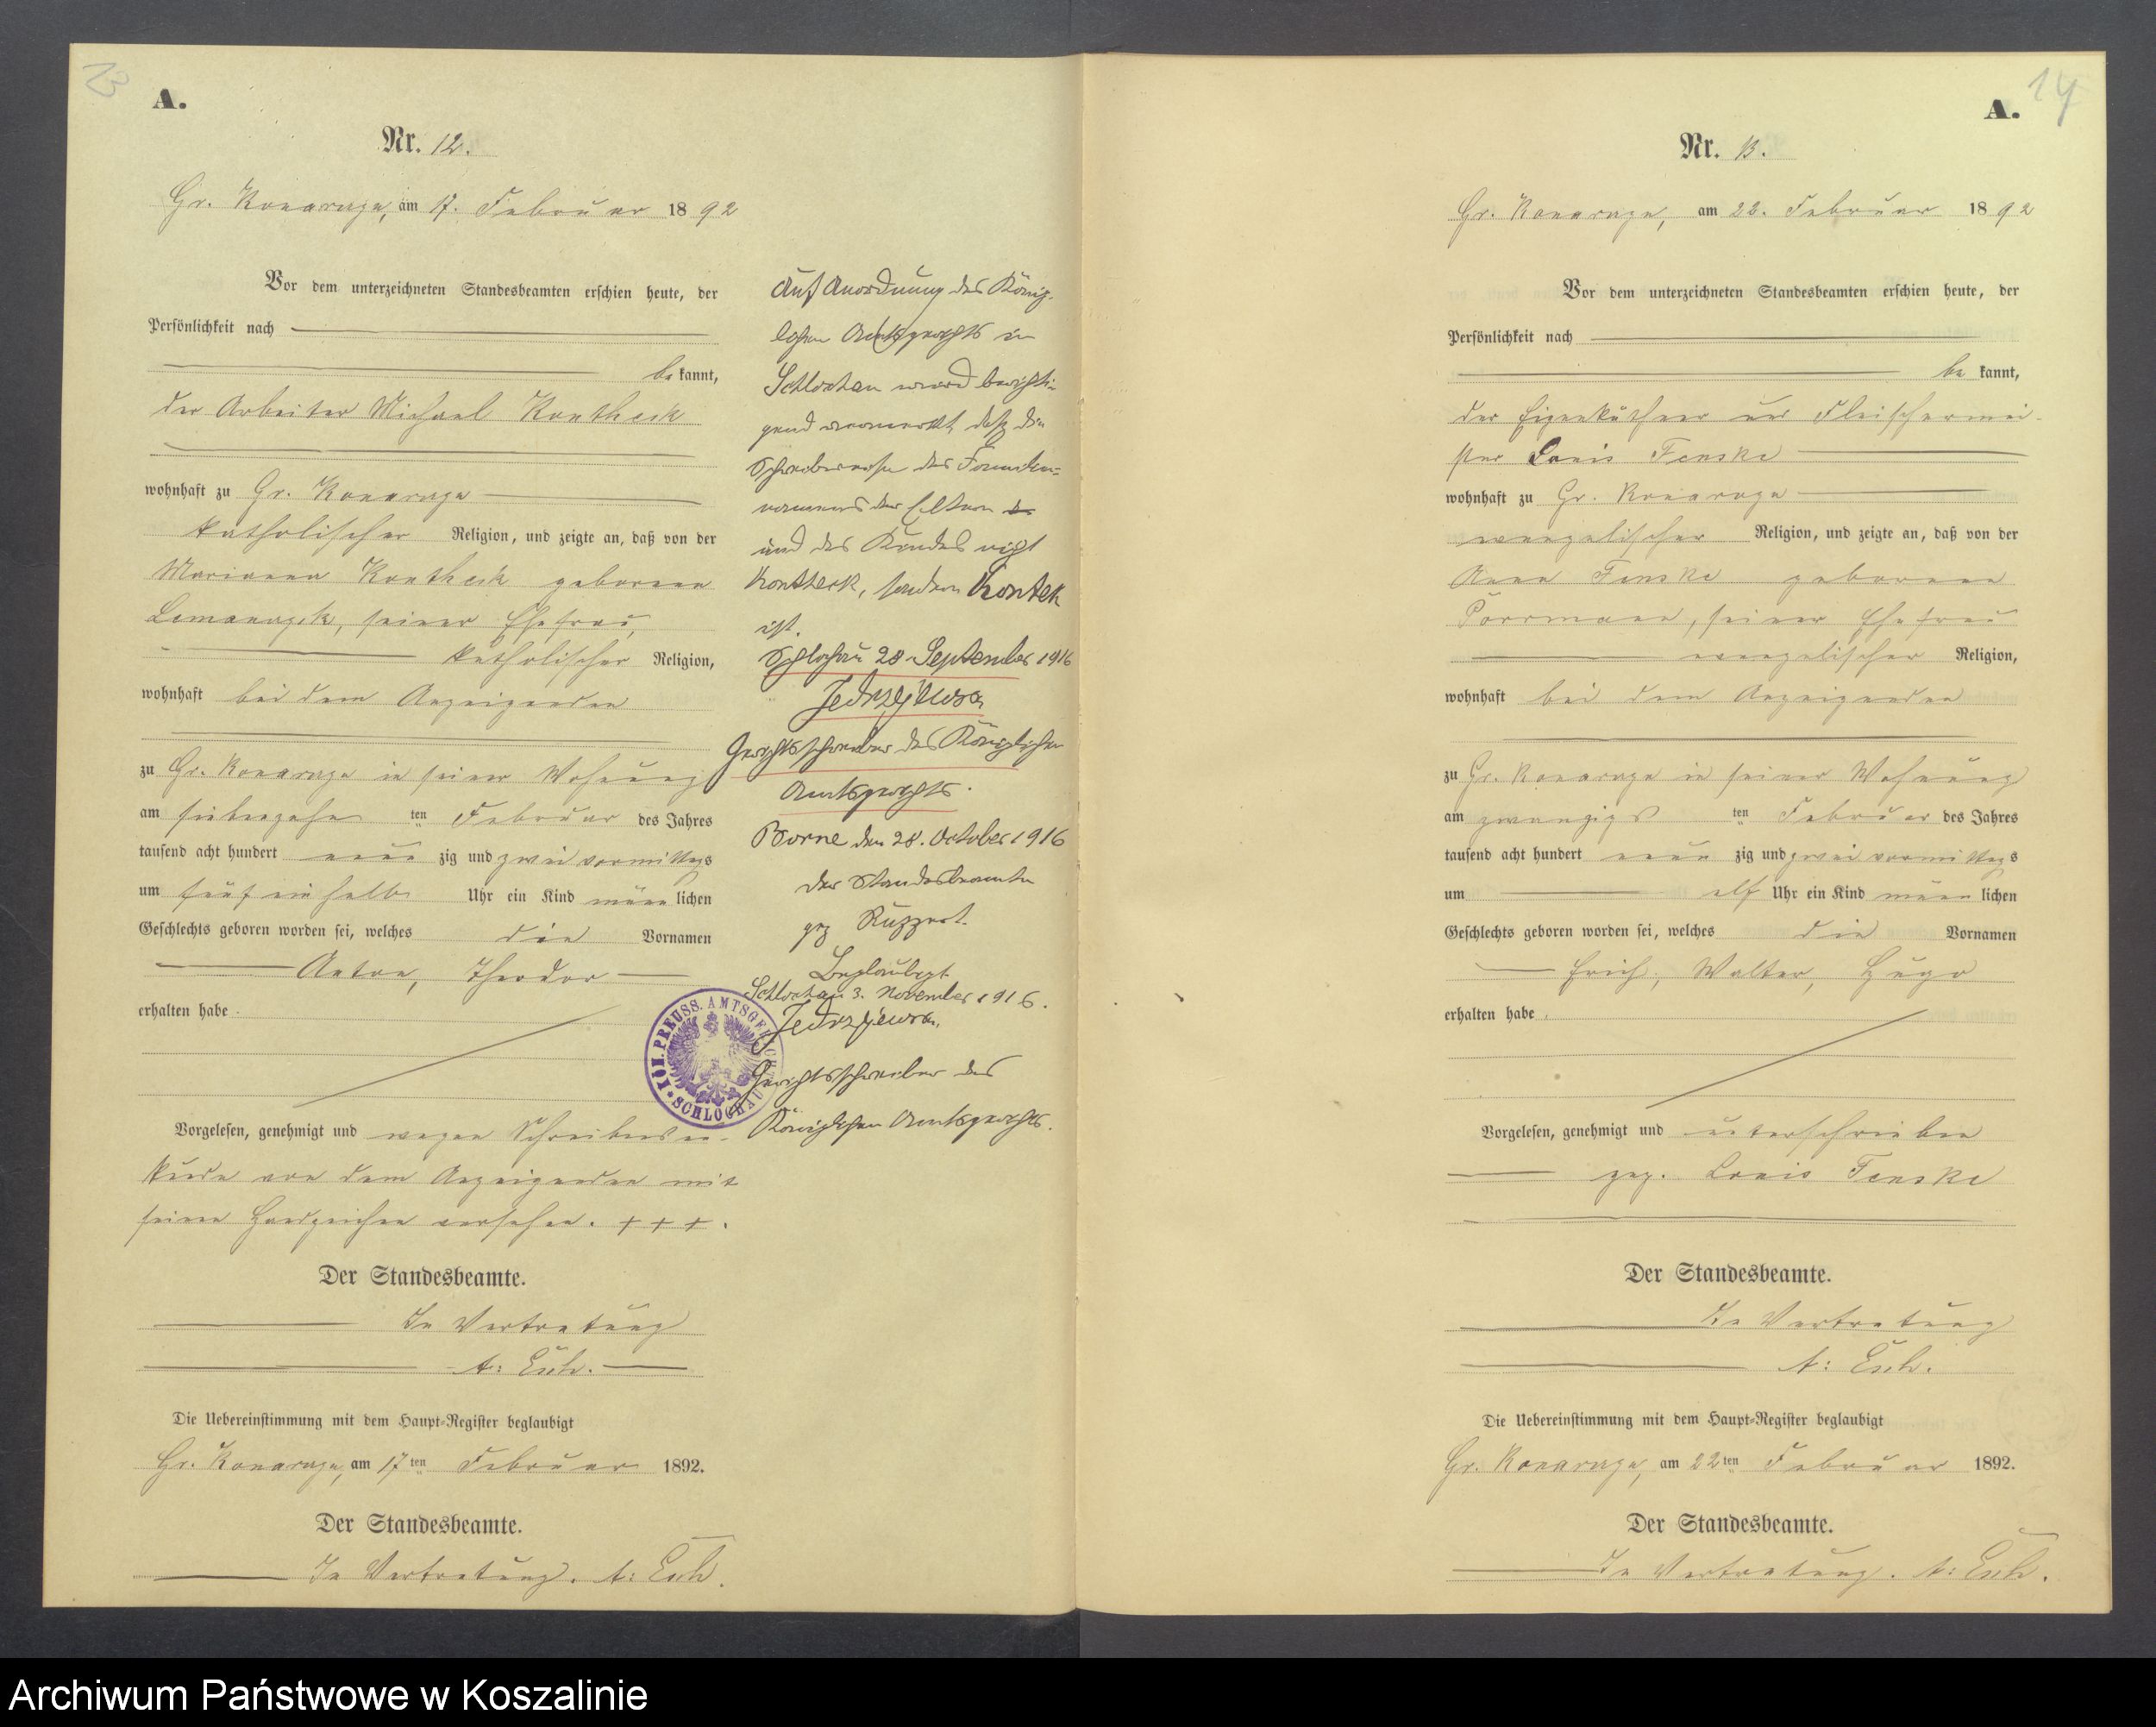 A.
Nr. 12.
Gr. Konarzyn, am 17. Februar 1892
Vor dem unterzeichneten Standesbeamten erschien heute, der
Persönlichkeit nach
bekannt,
der Arbeiter Michael Kontheck
wohnhaft zu Gr. Konarzyn
katholischer Religion, und zeigte an, daß von der
Marianna Kontheck geborenen
seiner Ehefrau,
katholischer Religion,
wohnhaft bei dem Anzeigenden
zu Gr. Konarzyn in seiner Wohnung
am siebenzehnten Februar des Jahres
tausend acht hundert neunzig und zwei vormittags
um fünf ein halb Uhr ein Kind männlichen
Geschlechts geboren worden sei, welches die Vornamen
Anton, Theodor
erhalten habe.
Vorgelesen, genehmigt und wegen Schreibensun-
kunde von dem Anzeigenden mit
seinem Handzeichen versehen. + + +.
Der Standesbeamte.
In Vertretung
Die Uebereinstimmung mit dem Haupt-Register beglaubigt
Gr. Konarzyn, am 17ten Februar 1892.
Der Standesbeamte.
In Vertretung.
Auf Anordnung des König-
lichen Amtsgerichts in
Schlochau wird berichti-
gend vermerkt, daß die
Schreibweise des Familien-
namens der Eltern
und des Kindes nicht
Kontheck, sondern Kontek
ist.
Schlochau 28 September 1916
Gerichtsschreiber des Königlichen
Amtsgerichts.
Borne den 28. October 1916
Der Standesbeamte
gez Ruppert.
Beglaubigt
Schlochau 3. November 1916.
Gerichtsschreiber des
Königlichen Amtsgerichts.
KÖN. PREUSS. AMTSGERICHT
SCHLOCHAU
14
A.
Nr. 13.
Gr. Konarzyn, am 22. Februar 1892
Vor dem unterzeichneten Standesbeamten erschien heute, der
Persönlichkeit nach
bekannt,
der Eigenkäthner und Fleischermei-
ster Louis Fenske
wohnhaft zu Gr. Konarzyn
evangelischer Religion, und zeigte an, daß von der
Anna Fenske geborenen
Porrmann, seiner Ehefrau
evangelischer Religion,
wohnhaft bei dem Anzeigenden
zu Gr. Konarzyn in seiner Wohnung
am zwanzigsten Februar des Jahres
tausend acht hundert neunzig und zwei vormittags
um elf Uhr ein Kind männlichen
Geschlechts geboren worden sei, welches die Vornamen
Erich, Walter, Hugo
erhalten habe.
Vorgelesen, genehmigt und unterschrieben
gez. Louis Fenske
Der Standesbeamte.
In Vertretung
Die Uebereinstimmung mit dem Haupt-Register beglaubigt
Gr. Konarzyn, am 22ten Februar 1892.
Der Standesbeamte.
In Vertretung.
Archiwum Państwowe w Koszalinie